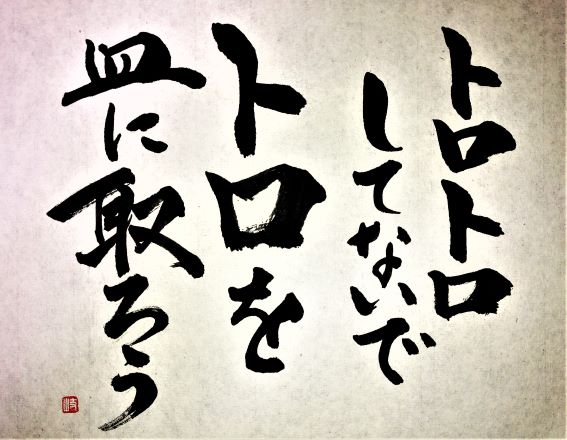 トロトロ
してないで
トロを
皿に取ろう